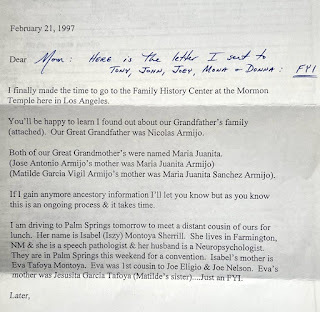 February 21, 1997
Dear Mom: HERE is the letter I sent to
TONY, JOHN, JOEY, MONA & DONNA: FYI
I finally made the time to go to the Family History Center at the Mormon
Temple here in Los Angeles.
You'll be happy to learn I found out about our Grandfather's family
(attached). Our Great Grandfather was Nicolas Armijo.
Both of our Great Grandmother's were named Maria Juanita.
(Jose Antonio Armijo's mother was Maria Juanita Armijo)
(Matilde Garcia Vigil Armijo's mother was Maria Juanita Sanchez Armijo).
If I gain anymore ancestory information I'll let you know but as you know
this is an ongoing process & it takes time.
I am driving to Palm Springs tomorrow to meet a distant cousin of ours for
lunch. Her name is Isabel (Iszy) Montoya Sherrill. She lives in Farmington,
NM & she is a speech pathologist & her husband is a Neuropsychologist.
They are in Palm Springs this weekend for a convention. Isabel's mother is
Eva Tafoya Montoya. Eva was 1st cousin to Joe Eligio & Joe Nelson. Eva's
mother was Jesusita Garcia Tafoya (Matilde's sister)....Just an FYI.
Later,